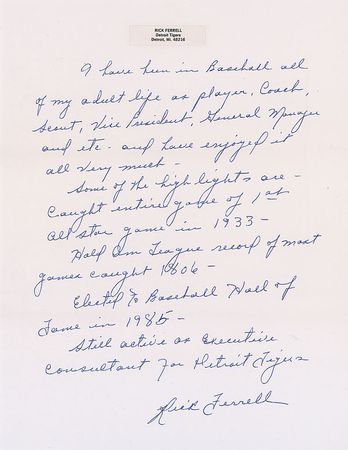 RICK FERRELL
Detroit Tigers
Detroit, MI. 48216
I have been in Baseball all
of my adult life as player, Coach,
Scout, Vice President, General Manager
and etc - and have enjoyed it
all very much -
Some of the highlights are -
Caught entire game of 1st
all star game in 1933 -
Hold Am League record of most
games caught 1806 -
Elected to Baseball Hall of
Fame in 1985 -
Still active as Executive
Consultant for Detroit Tigers
Rick Ferrell